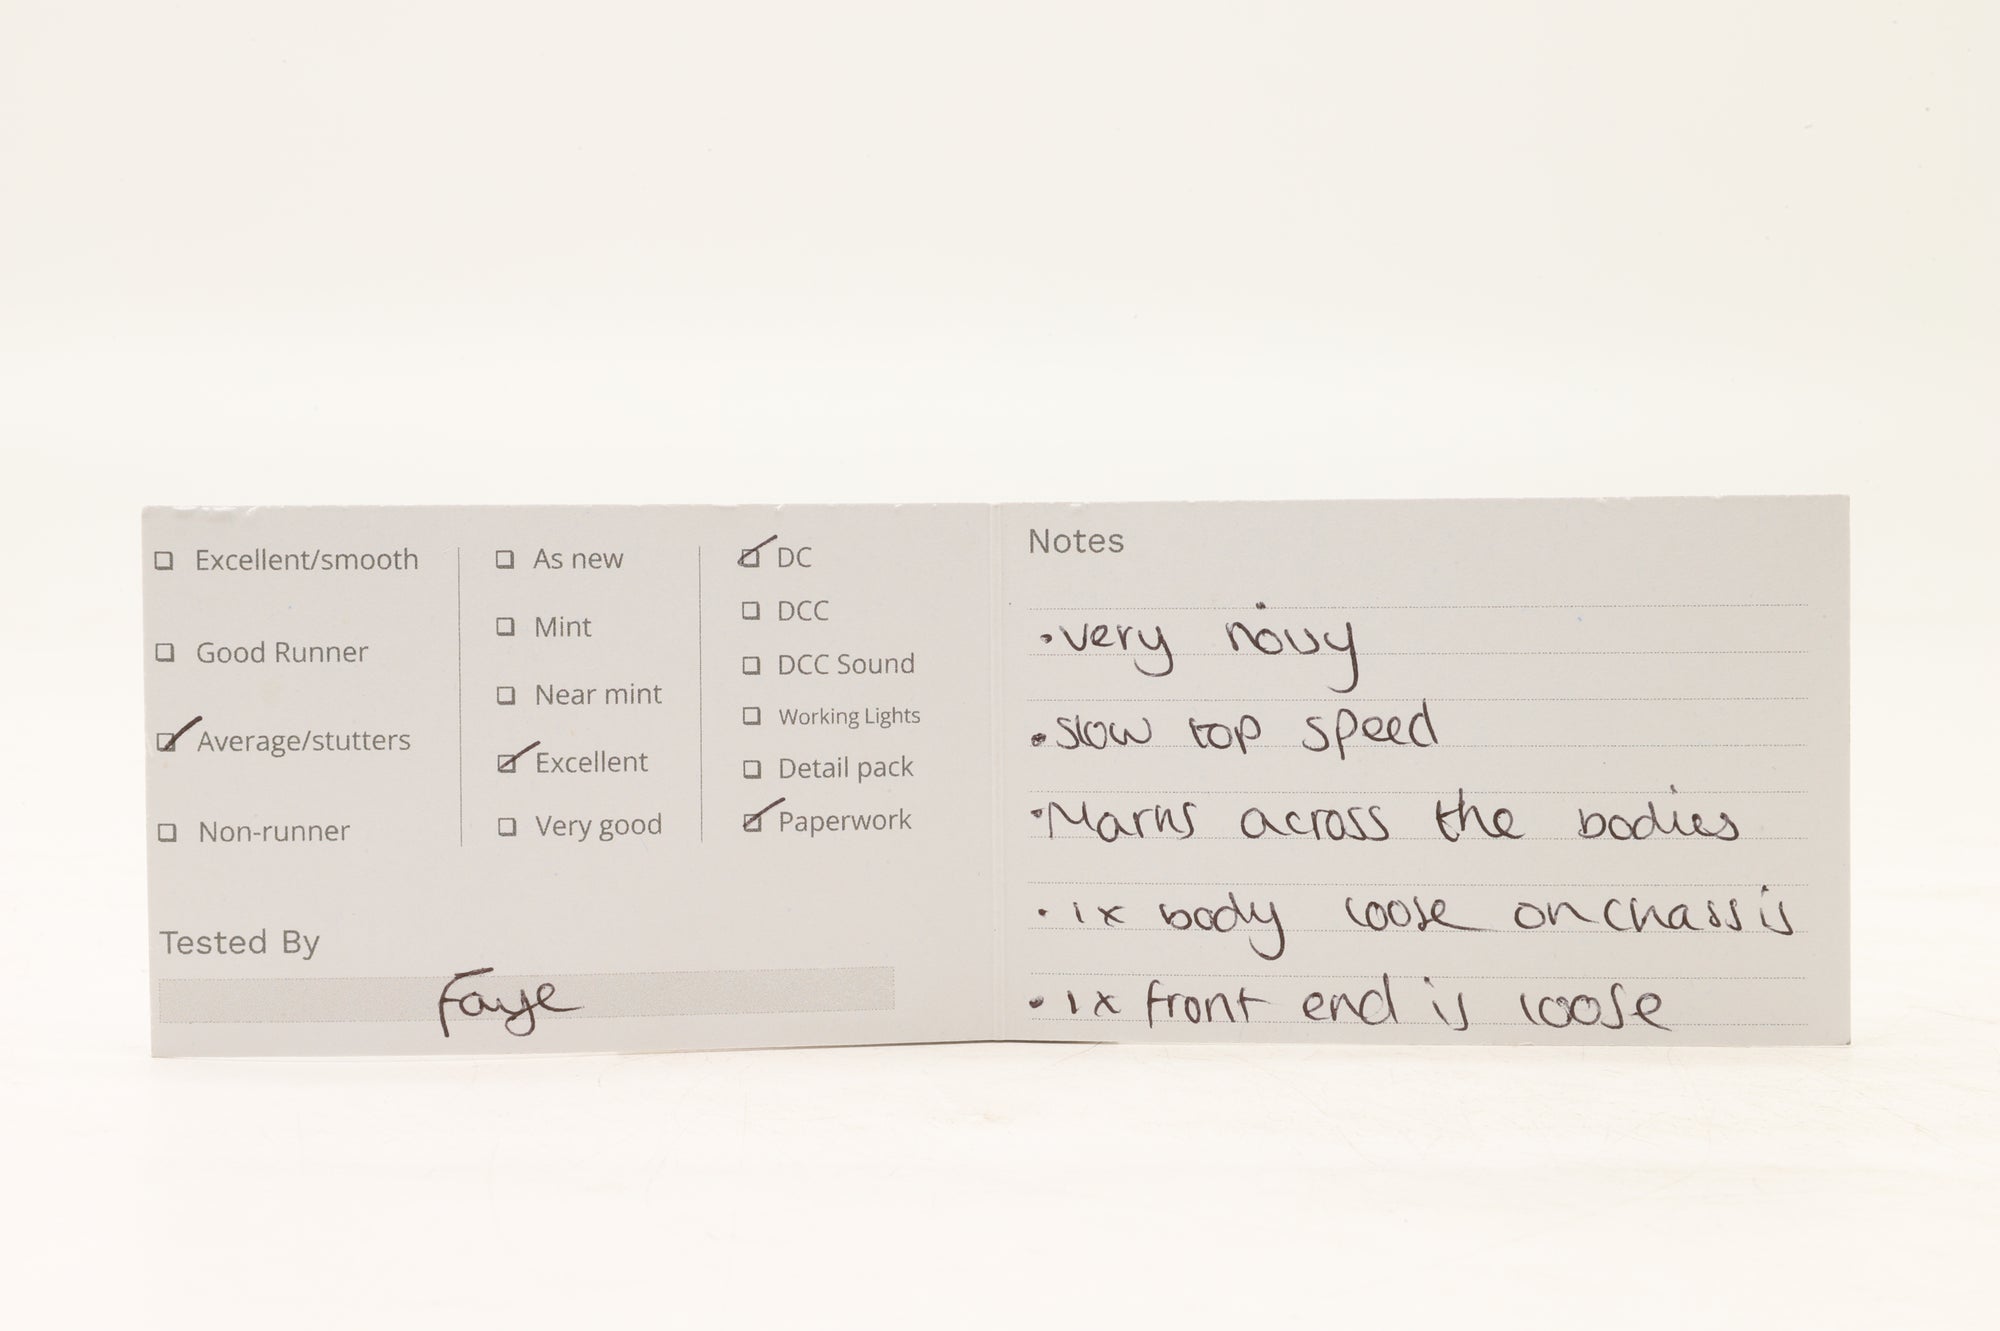 Excellent/smooth
Good Runner
Average/stutters
Non-runner
As new
Mint
Near mint
Excellent
Very good
DC
DCC
DCC Sound
Working Lights
Detail pack
Paperwork
Tested By
Faye
Notes
• very noisy
• slow top speed
• Marks across the bodies
• 1x body loose on chassis
• 1x front end is loose